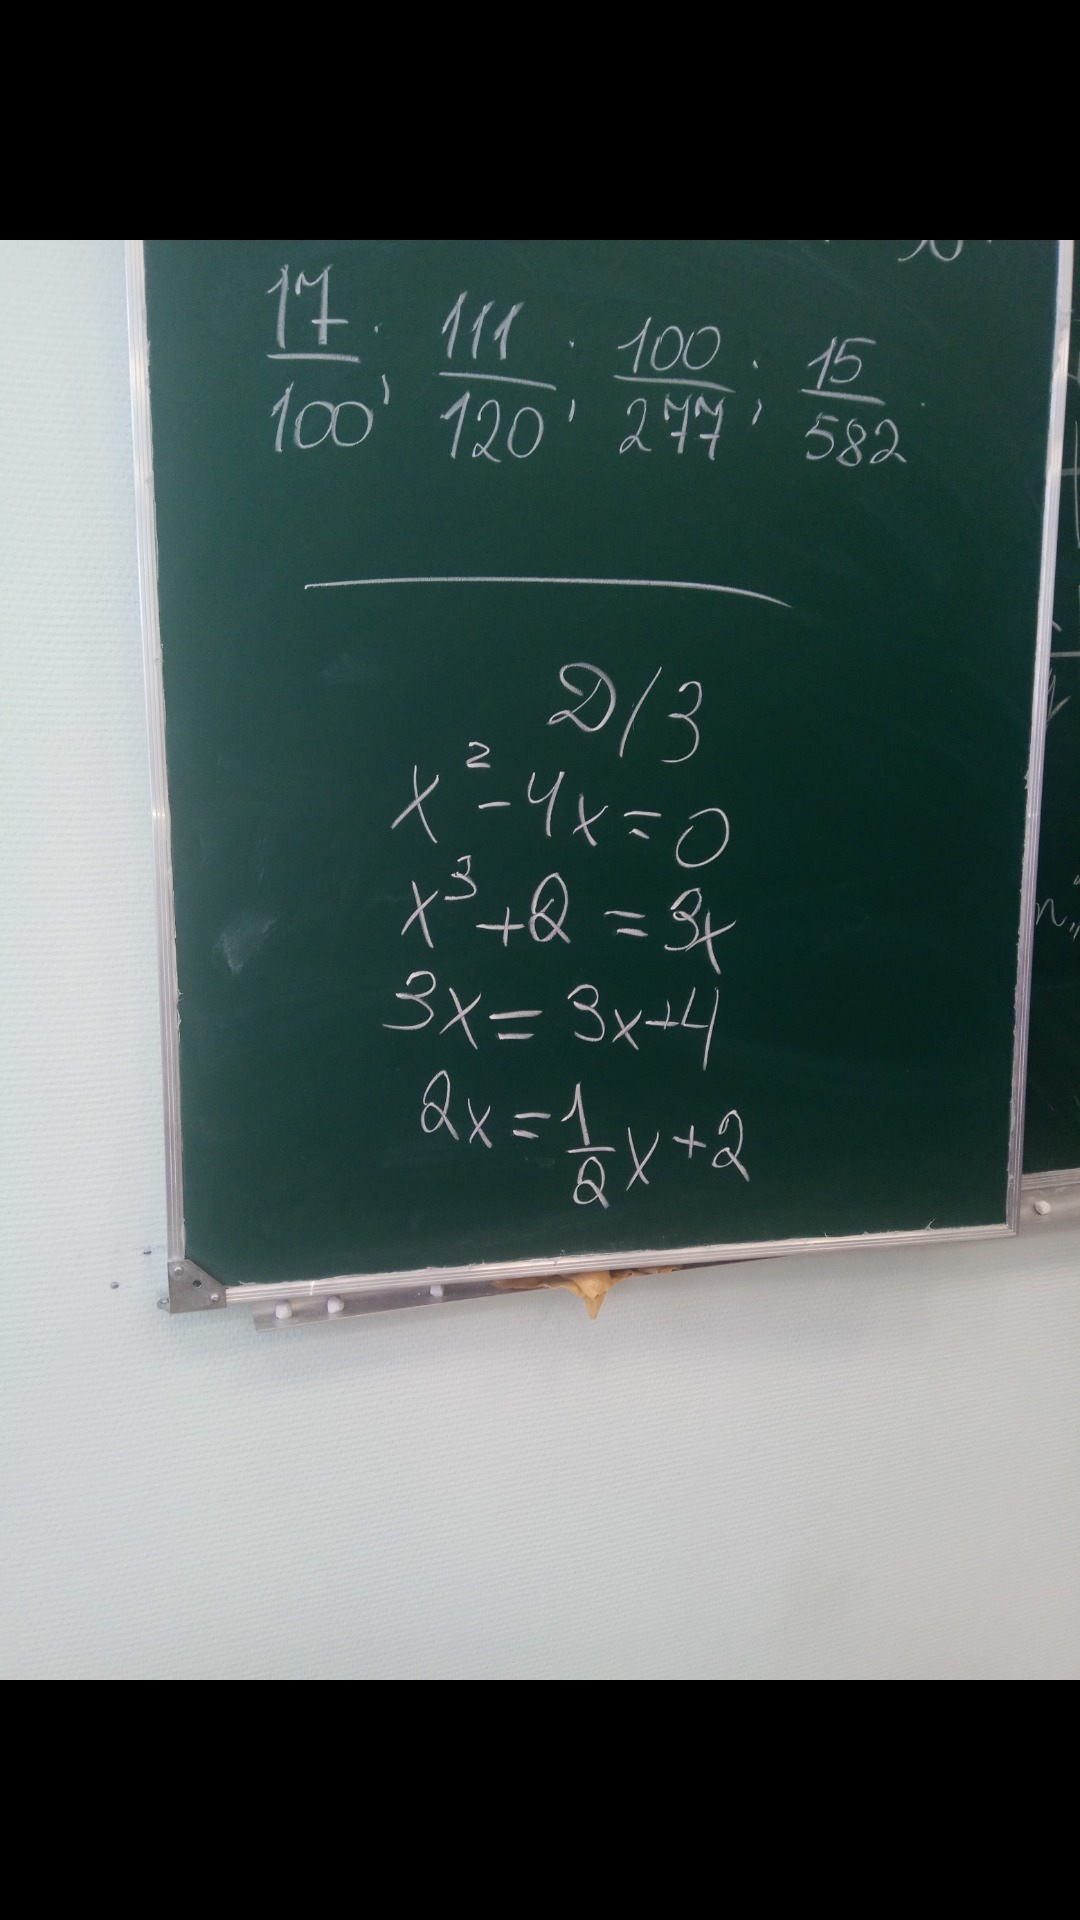 17/100; 111/120; 100/277; 15/582.
Д/З
x² - 4x = 0
x³ + 2 = 3x
3x = 3x + 4
2x = 1/2 x + 2